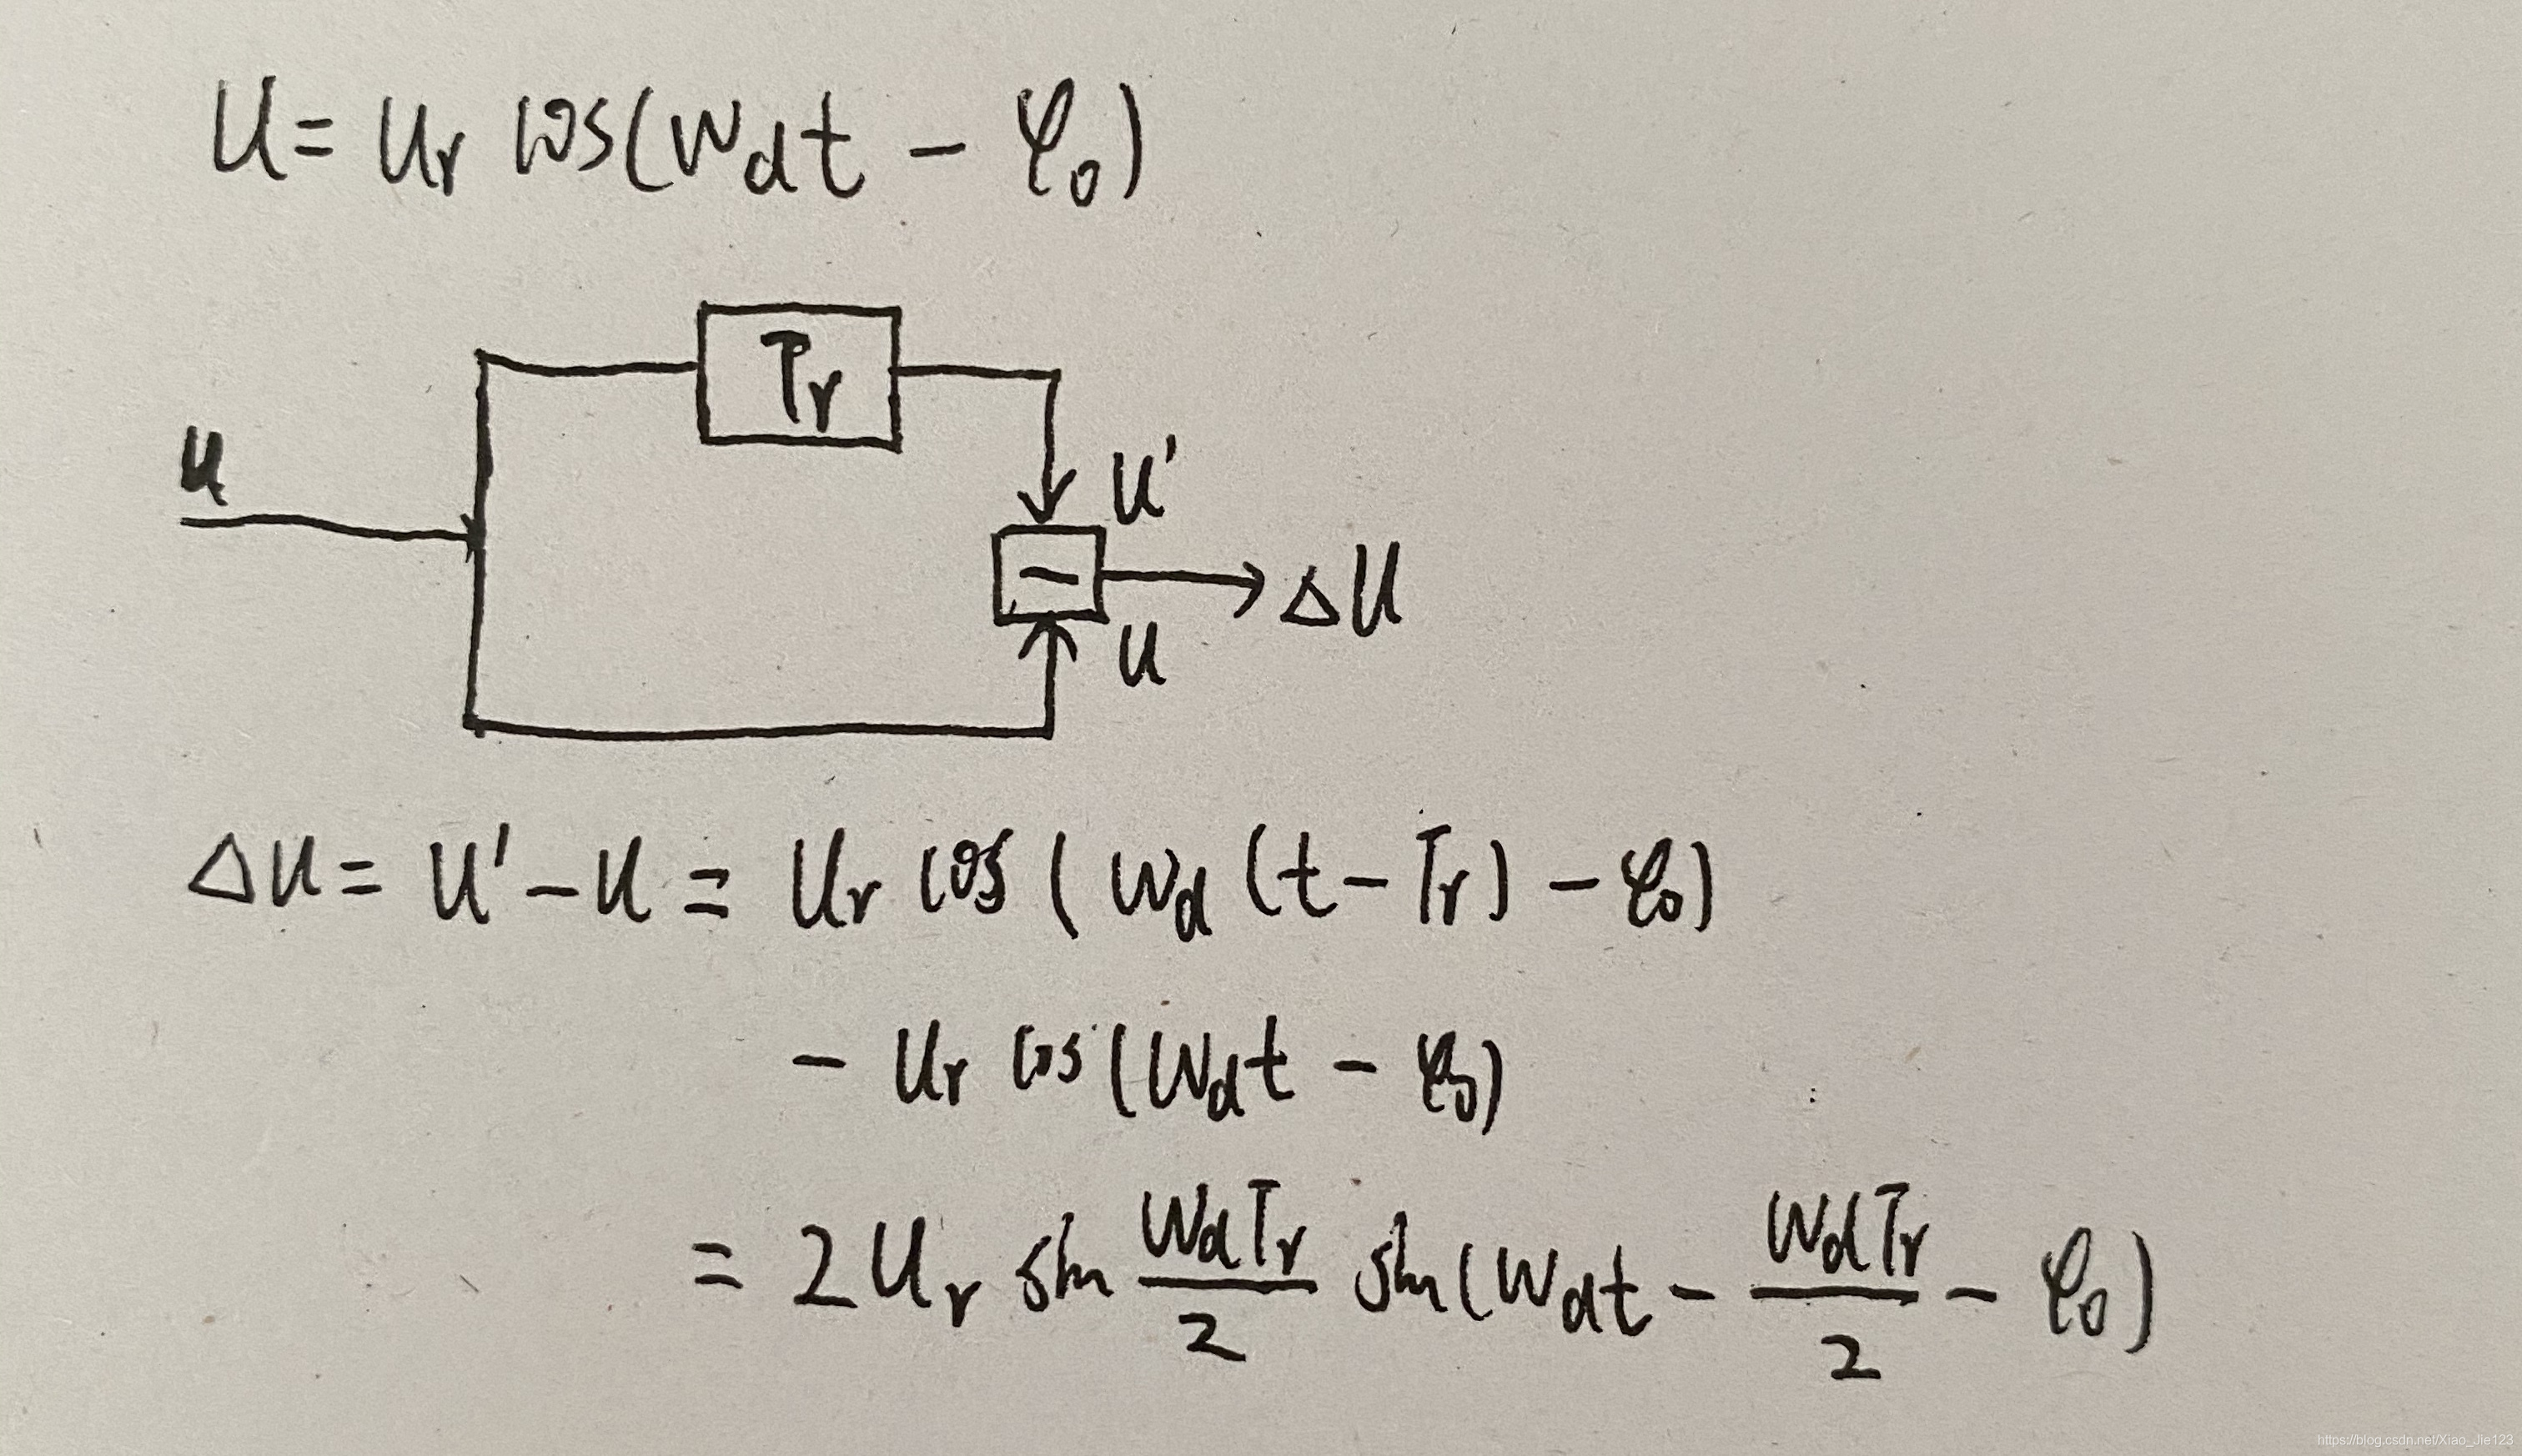 U = Ur cos(ωdt − φ0)
Tr
u
U'
−
ΔU
U
ΔU = U' − U = Ur cos(ωd(t − Tr) − φ0)
− Ur cos(ωdt − φ0)
= 2Ur sin ωdTr/2 sin(ωdt − ωdTr/2 − φ0)
https://blog.csdn.net/Xiao_Jie123